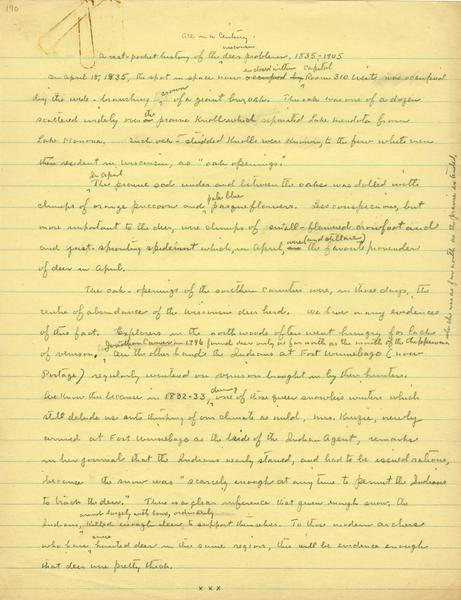 190
All in a Century
A vest-pocket history of the Wisconsin deer problem, 1835-1905
On April 18, 1835, the spot in space now enclosed within Capitol Room 310 West, was occupied
by the wide-branching crown of a giant bur oak. The oak was one of a dozen
scattered widely over the prairie knoll which separated Lake Mendota from
Lake Monona. Such oak-studded knolls were known, to the few whites
then resident in Wisconsin, as "oak openings."
In April The prairie sod under and between the oaks was dotted with
clumps of orange puccoon and pale blue pasque flowers. Less conspicuous, but
more important to the deer, were clumps of small-flowered crowfoot and
and just-sprouting spiderwort which, in April, were (and still are) the favorite provender
of deer in April.
The oak-openings of the southern counties were, in those days, the
centre of abundance of the Wisconsin deer herd. We have many evidences
of this fact. Explorers in the north woods often went hungry for lack
of venison. Jonathan Carver in 1796 found deer only as far north as the mouth of the Chippewa
On the other hand the Indians at Fort Winnebago (now
Portage) regularly wintered on venison brought in by their hunters.
We know this because in 1832-33, during one of those queer snowless winters which
still delude us into thinking of our climate as mild, Mrs. Kinzie, newly
arrived at Fort Winnebago as the bride of the Indian Agent, remarks
in her journals that the Indians nearly starved, and had to be issued rations,
because the snow was "scarcely enough at any time to permit the Indians
to track the deer." There is a clear inference that given enough snow, the
Indians, armed largely with bows, ordinarily killed enough deer to support themselves. To those modern archers
who have since hunted deer in the same region, this will be evidence enough
that deer were pretty thick.
x x x